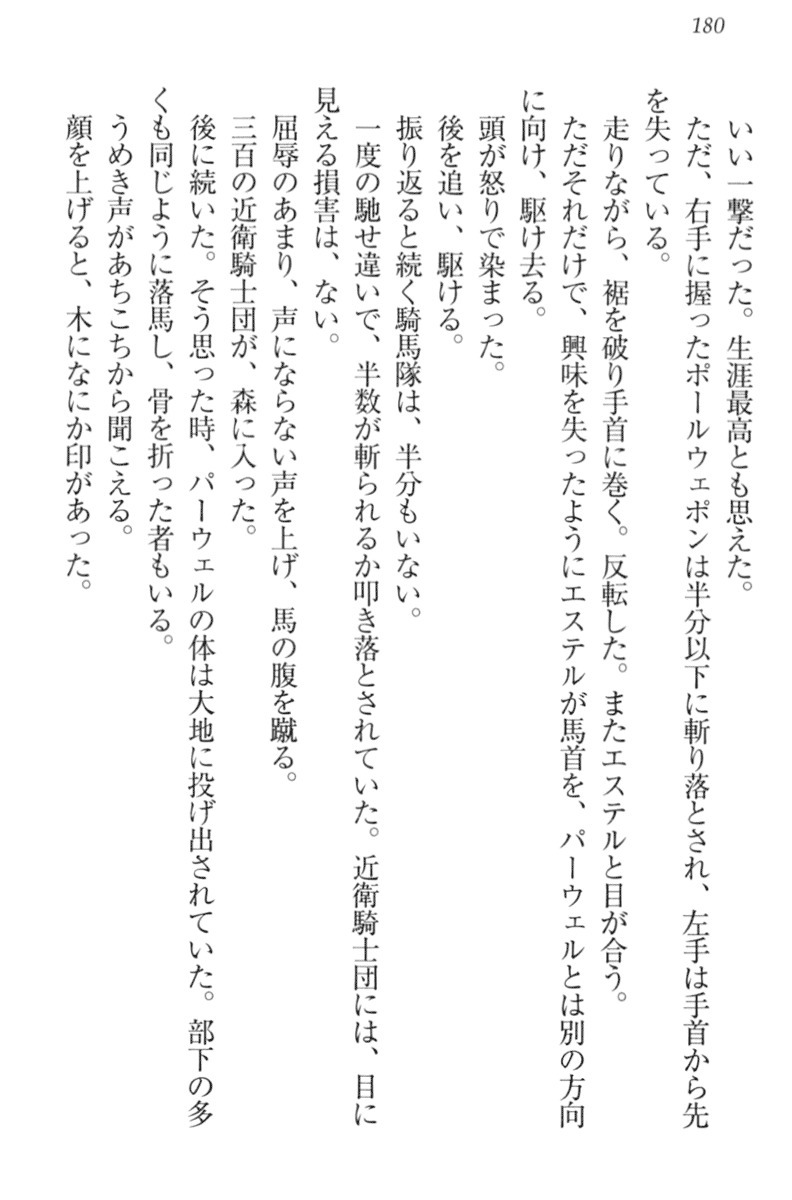 180
いい一撃だった。生涯最高とも思えた。
ただ、右手に握ったポールウェポンは半分以下に斬り落とされ、左手は手首から先
を失っている。
走りながら、裾を破り手首に巻く。反転した。またエステルと目が合う。
ただそれだけで、興味を失ったようにエステルが馬首を、パーウェルとは別の方向
に向け、駆け去る。
頭が怒りで染まった。
後を追い、駆ける。
振り返ると続く騎馬隊は、半分もいない。
一度の馳せ違いで、半数が斬られるか叩き落とされていた。近衛騎士団には、目に
見える損害は、ない。
屈辱のあまり、声にならない声を上げ、馬の腹を蹴る。
三百の近衛騎士団が、森に入った。
後に続いた。そう思った時、パーウェルの体は大地に投げ出されていた。部下の多
くも同じように落馬し、骨を折った者もいる。
うめき声があちこちから聞こえる。
顔を上げると、木になにか印があった。